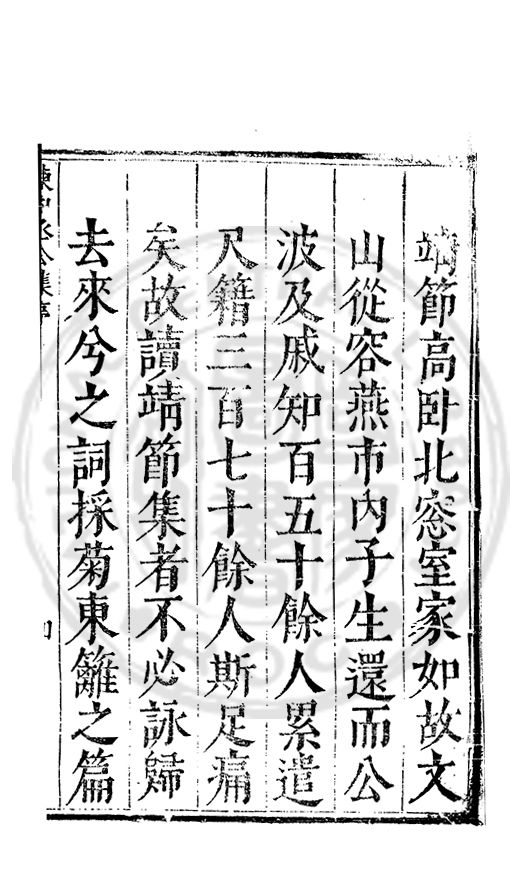 靖節高卧北窓室家如故文
山從容燕市內子生還而公
波及戚知百五十餘人累遣
尺籍三百七十餘人斯足痛
矣故讀靖節集者不必詠歸
去來兮之詞採菊東籬之篇